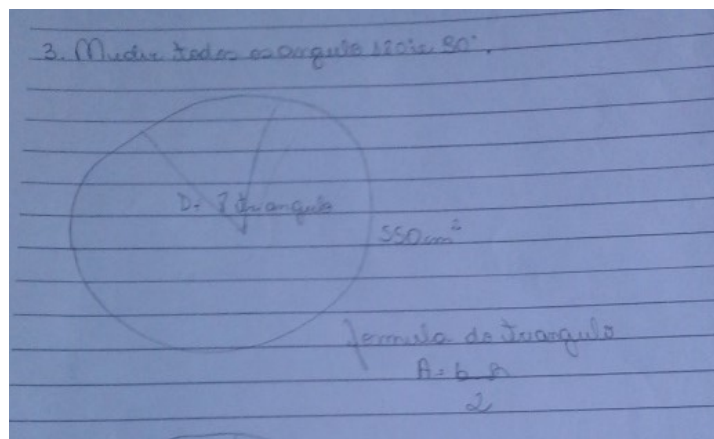 3. Medir todos os angulo 120° e 90°.
D= 7 triangulo
550cm²
formula do triangulo
A= b h
2